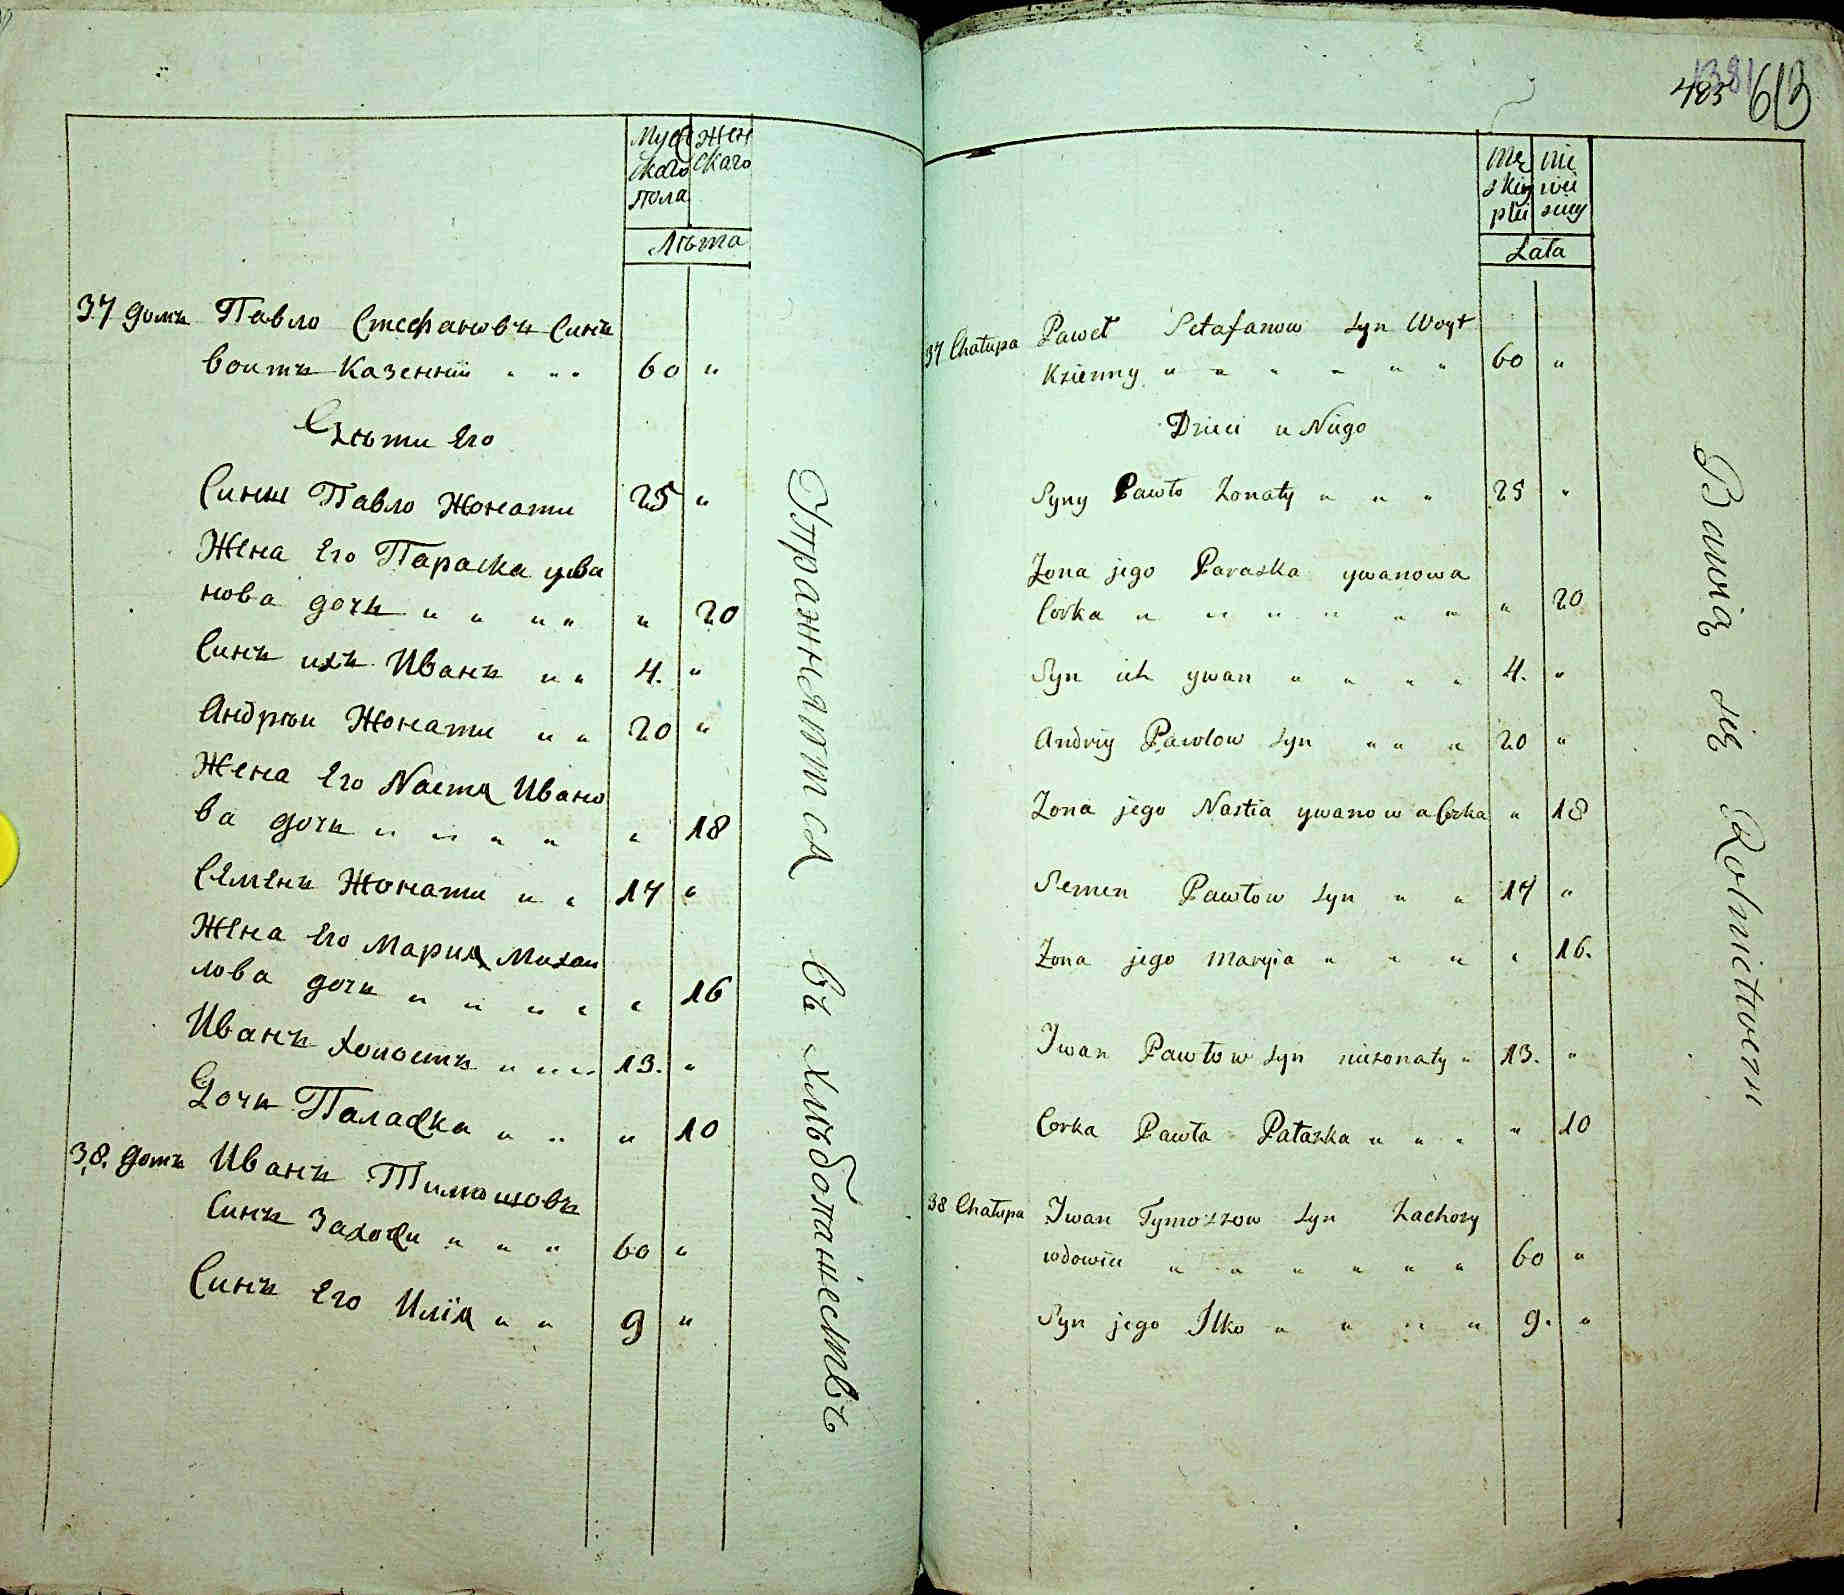 Мужескаго пола
Женскаго
Лѣта
37 домъ Павло Стефановъ Синъ
воитъ Казенній " " " 60 "
Дѣти Его
Сини Павло Жонати 25 "
Жена Его Параска ува
нова дочь " " " " " 20
Синъ ихъ Иванъ " " 4. "
Андрѣи Жонати " " 20 "
Жена Его Настя Ивано
ва дочь " " " " " 18
Семенъ Жонати " " 17 "
Жена Его Мария Михаи
лова дочь " " " " " 16
Иванъ холостъ " " " " 13. "
Дочь Паласка " " " 10
38. домъ Иванъ Тимошовъ
Синъ " " " 60 "
Синъ Его Илія " " 9 "
Упражняются въ хлѣбопашествѣ
613
Męskiey płci
Lata
37 Chałupa Paweł Sctafanow Syn Woyt
Ksienny " " " " " " 60 "
Dzieci u Niego
Syny Pawło Zonaty " " " 25 "
Zona jego Paraska ywanowa
Corka " " " " " " " 20
Syn ich ywan " " " " 4. "
Andriy Pawlow Syn " " " 20 "
Zona jego Nastia ywanowa Corka " 18
Semen Pawłow Syn " " 17 "
Zona jego Maryia " " " " 16.
Iwan Pawłow Syn niezonaty " 13. "
Corka Pawła Pałaska " " " " 10
38 Chałupa Iwan Tymoszow Syn Zachozy
wdowiu " " " " " " 60 "
Syn jego Ilko " " " " 9. "
Bawią się Rolnictwem